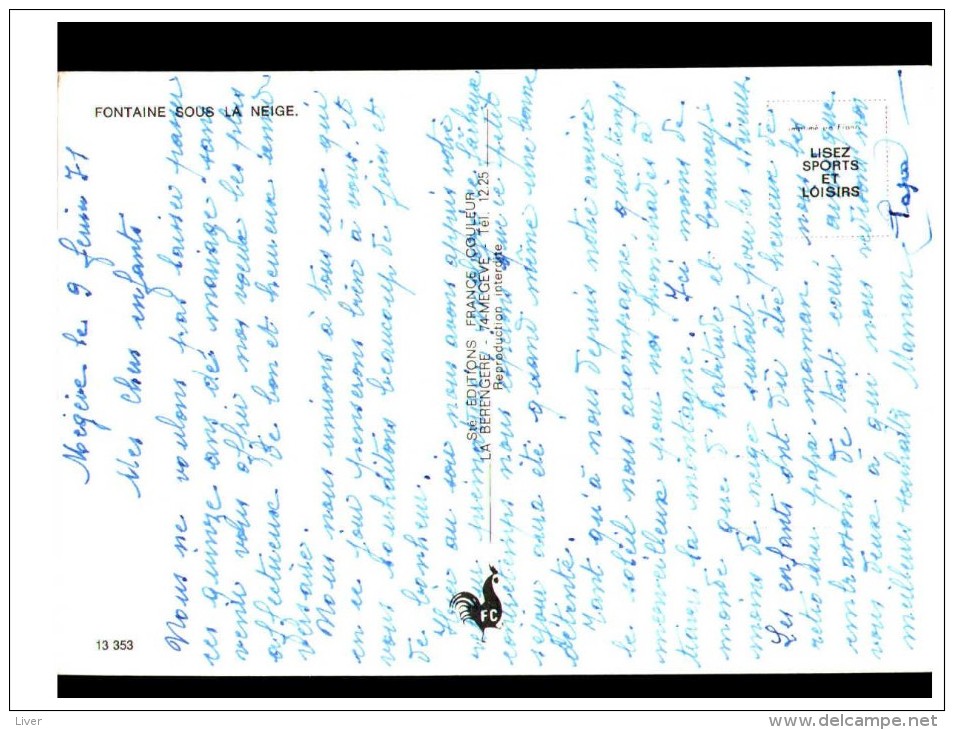 FONTAINE SOUS LA NEIGE.
Megève le 9 février 71
Mes chers enfants
Nous ne voulons pas laisser passer
ces quinze ans de mariage sans
venir vous offrir nos voeux les plus
affectueux de bon et heureux anni
versaire.
Nous nous unissons à tous ceux qui
en ce jour penseront bien à vous et
vous souhaitons beaucoup de joies et
de bonheur.
Hier au soir nous avons appris votre
nous
temps nous espérons que ce petit
séjour aura été quand même une bonne
détente.
Quant qu'à nous depuis notre arrivée
le soleil nous accompagne quel temps
merveilleux pour nos promenades à
travers la montagne. Ici moins de
monde que d'habitude et beaucoup
moins de neige surtout pour les skieurs
Les enfants ont dû être heureux de
retrouver papa maman. nous les
embrassons de tout coeur ainsi que
vous deux à qui nous renouvelons nos
meilleurs souhaits Maman
Papa
Imprimé en France
LISEZ
SPORTS
ET
LOISIRS
Sté EDITIONS FRANCE COULEUR
LA BERENGERE - 74-MEGEVE - Tél. 12.25
Reproduction interdite
FC
13 353
Liver
delcampe.net